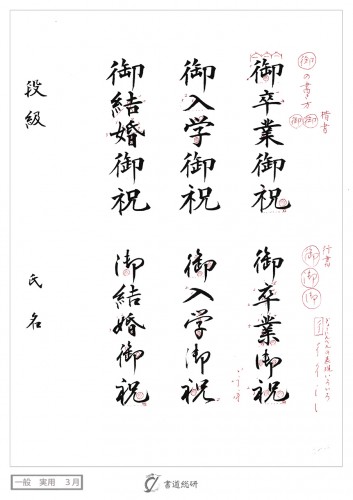 御の書き方
楷書
御
御
御卒業御祝
御入学御祝
御結婚御祝
段級
行書
御
御
御
御卒業御祝
御入学御祝
御結婚御祝
氏名
一般 実用 3月
書道総研